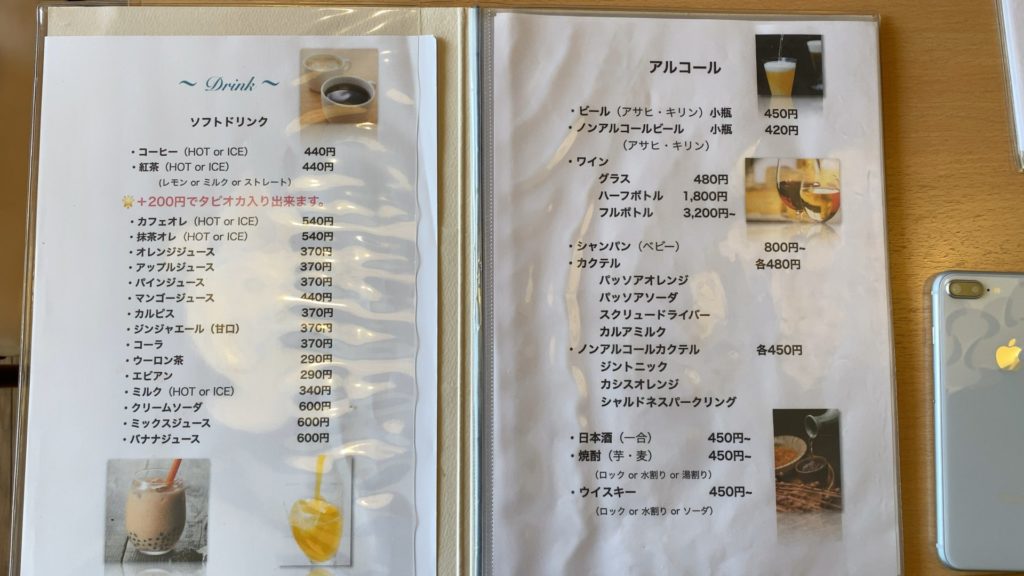 ～ Drink ～
ソフトドリンク
・コーヒー（HOT or ICE） 440円
・紅茶（HOT or ICE） 440円
(レモン or ミルク or ストレート)
＋200円でタピオカ入り出来ます。
・カフェオレ（HOT or ICE） 540円
・抹茶オレ（HOT or ICE） 540円
・オレンジジュース 370円
・アップルジュース 370円
・パインジュース 370円
・マンゴージュース 440円
・カルピス 370円
・ジンジャエール（甘口） 370円
・コーラ 370円
・ウーロン茶 290円
・エビアン 290円
・ミルク（HOT or ICE） 340円
・クリームソーダ 600円
・ミックスジュース 600円
・バナナジュース 600円
アルコール
・ビール（アサヒ・キリン）小瓶 450円
・ノンアルコールビール 小瓶 420円
（アサヒ・キリン）
・ワイン
グラス 480円
ハーフボトル 1,800円
フルボトル 3,200円~
・シャンパン（ベビー） 800円~
・カクテル 各480円
パッソアオレンジ
パッソアソーダ
スクリュードライバー
カルアミルク
・ノンアルコールカクテル 各450円
ジントニック
カシスオレンジ
シャルドネスパークリング
・日本酒（一合） 450円~
・焼酎（芋・麦） 450円~
（ロック or 水割り or 湯割り）
・ウイスキー 450円~
（ロック or 水割り or ソーダ）